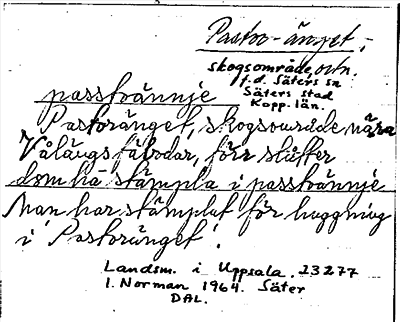 Pastor-änget,
skogsområde, ortn.
f.d. Säters sn
Säters stad
Kopp. län.
passtrännje
Pastoränget, skogsområde nära
Vålängs fäbodar, förr slåtter
dom ha stämpla i passtrännje
Man har stämplat för huggning
i Pastoränget.
Landsm. i Uppsala. 23277
I. Norman 1964. Säter
DAL.